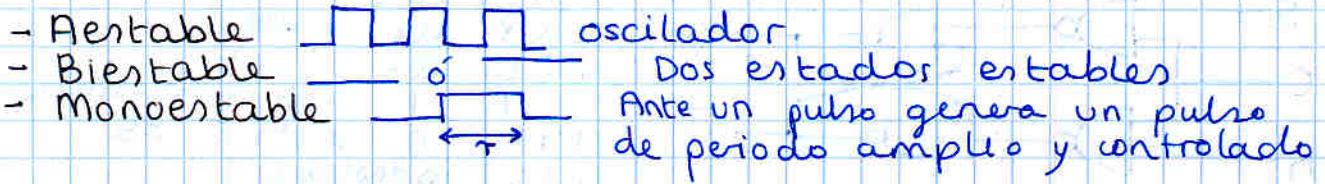 - Aestable oscilador.
- Biestable ó Dos estados estables
- Monoestable Ante un pulso genera un pulso
T de periodo amplio y controlado